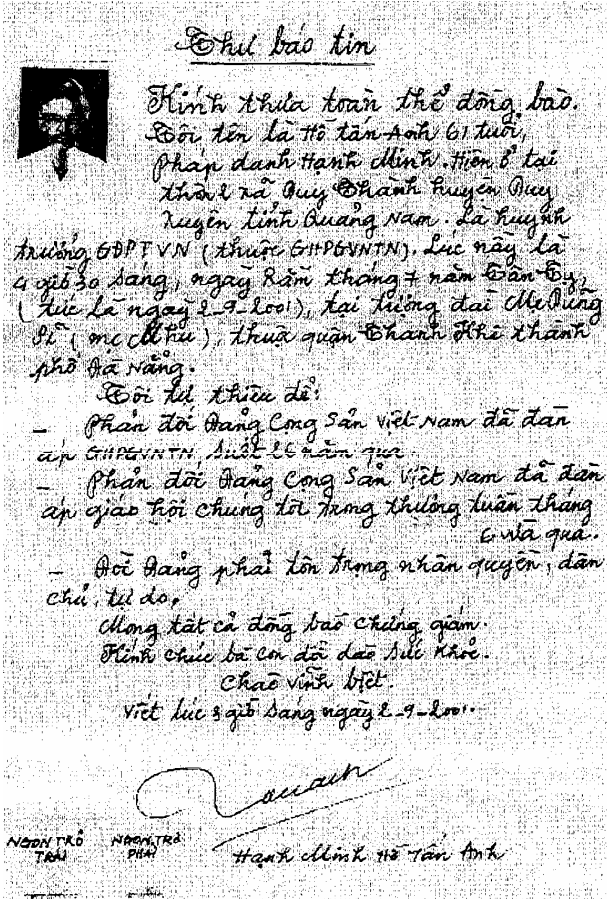 Thư báo tin
Kính thưa toàn thể đồng bào.
Tôi tên là Hồ tấn Anh 61 tuổi,
Pháp danh Hạnh Minh. Hiện ở tại
thôn 2 xã Duy Thành huyện Duy
Xuyên tỉnh Quảng Nam. Là huynh
trưởng GĐPTVN (thuộc GHPGVNTN). Lúc này là
4 giờ 30 sáng, ngày Rằm tháng 7 năm Tân Tỵ,
(tức là ngày 2-9-2001), tại tượng đài Mẹ Dũng
Sĩ (mẹ Nhu), thuộc quận Thanh Khê thành
phố Đà Nẵng.
Tôi tự thiêu để:
- Phản đối Đảng Cộng Sản Việt Nam đã đàn
áp GHPGVNTN suốt 26 năm qua.
- Phản đối Đảng Cộng Sản Việt Nam đã đàn
áp giáo hội chúng tôi trong thượng tuần tháng
6 vừa qua.
- Đòi Đảng phải tôn trọng nhân quyền, dân
chủ, tự do,
Mong tất cả đồng bào chứng giám.
Kính chúc bà con dồi dào sức khỏe.
Chào vĩnh biệt.
Viết lúc 3 giờ sáng ngày 2-9-2001.
NGÓN TRỎ TRÁI
NGÓN TRỎ PHẢI
Hạnh Minh Hồ Tấn Anh